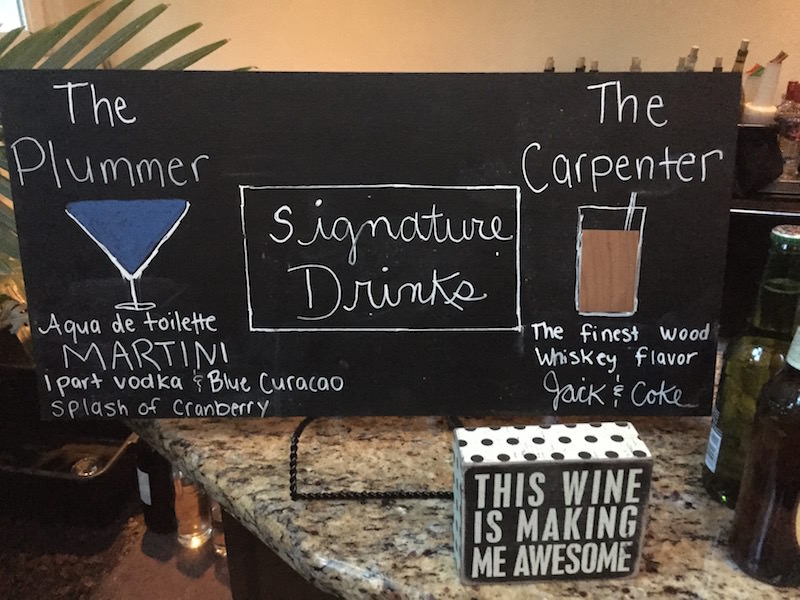 The
Plummer
Aqua de toilette
MARTINI
1 part vodka & Blue Curacao
splash of cranberry
Signature
Drinks
The
Carpenter
The finest wood
Whiskey flavor
Jack & Coke
THIS WINE
IS MAKING
ME AWESOME